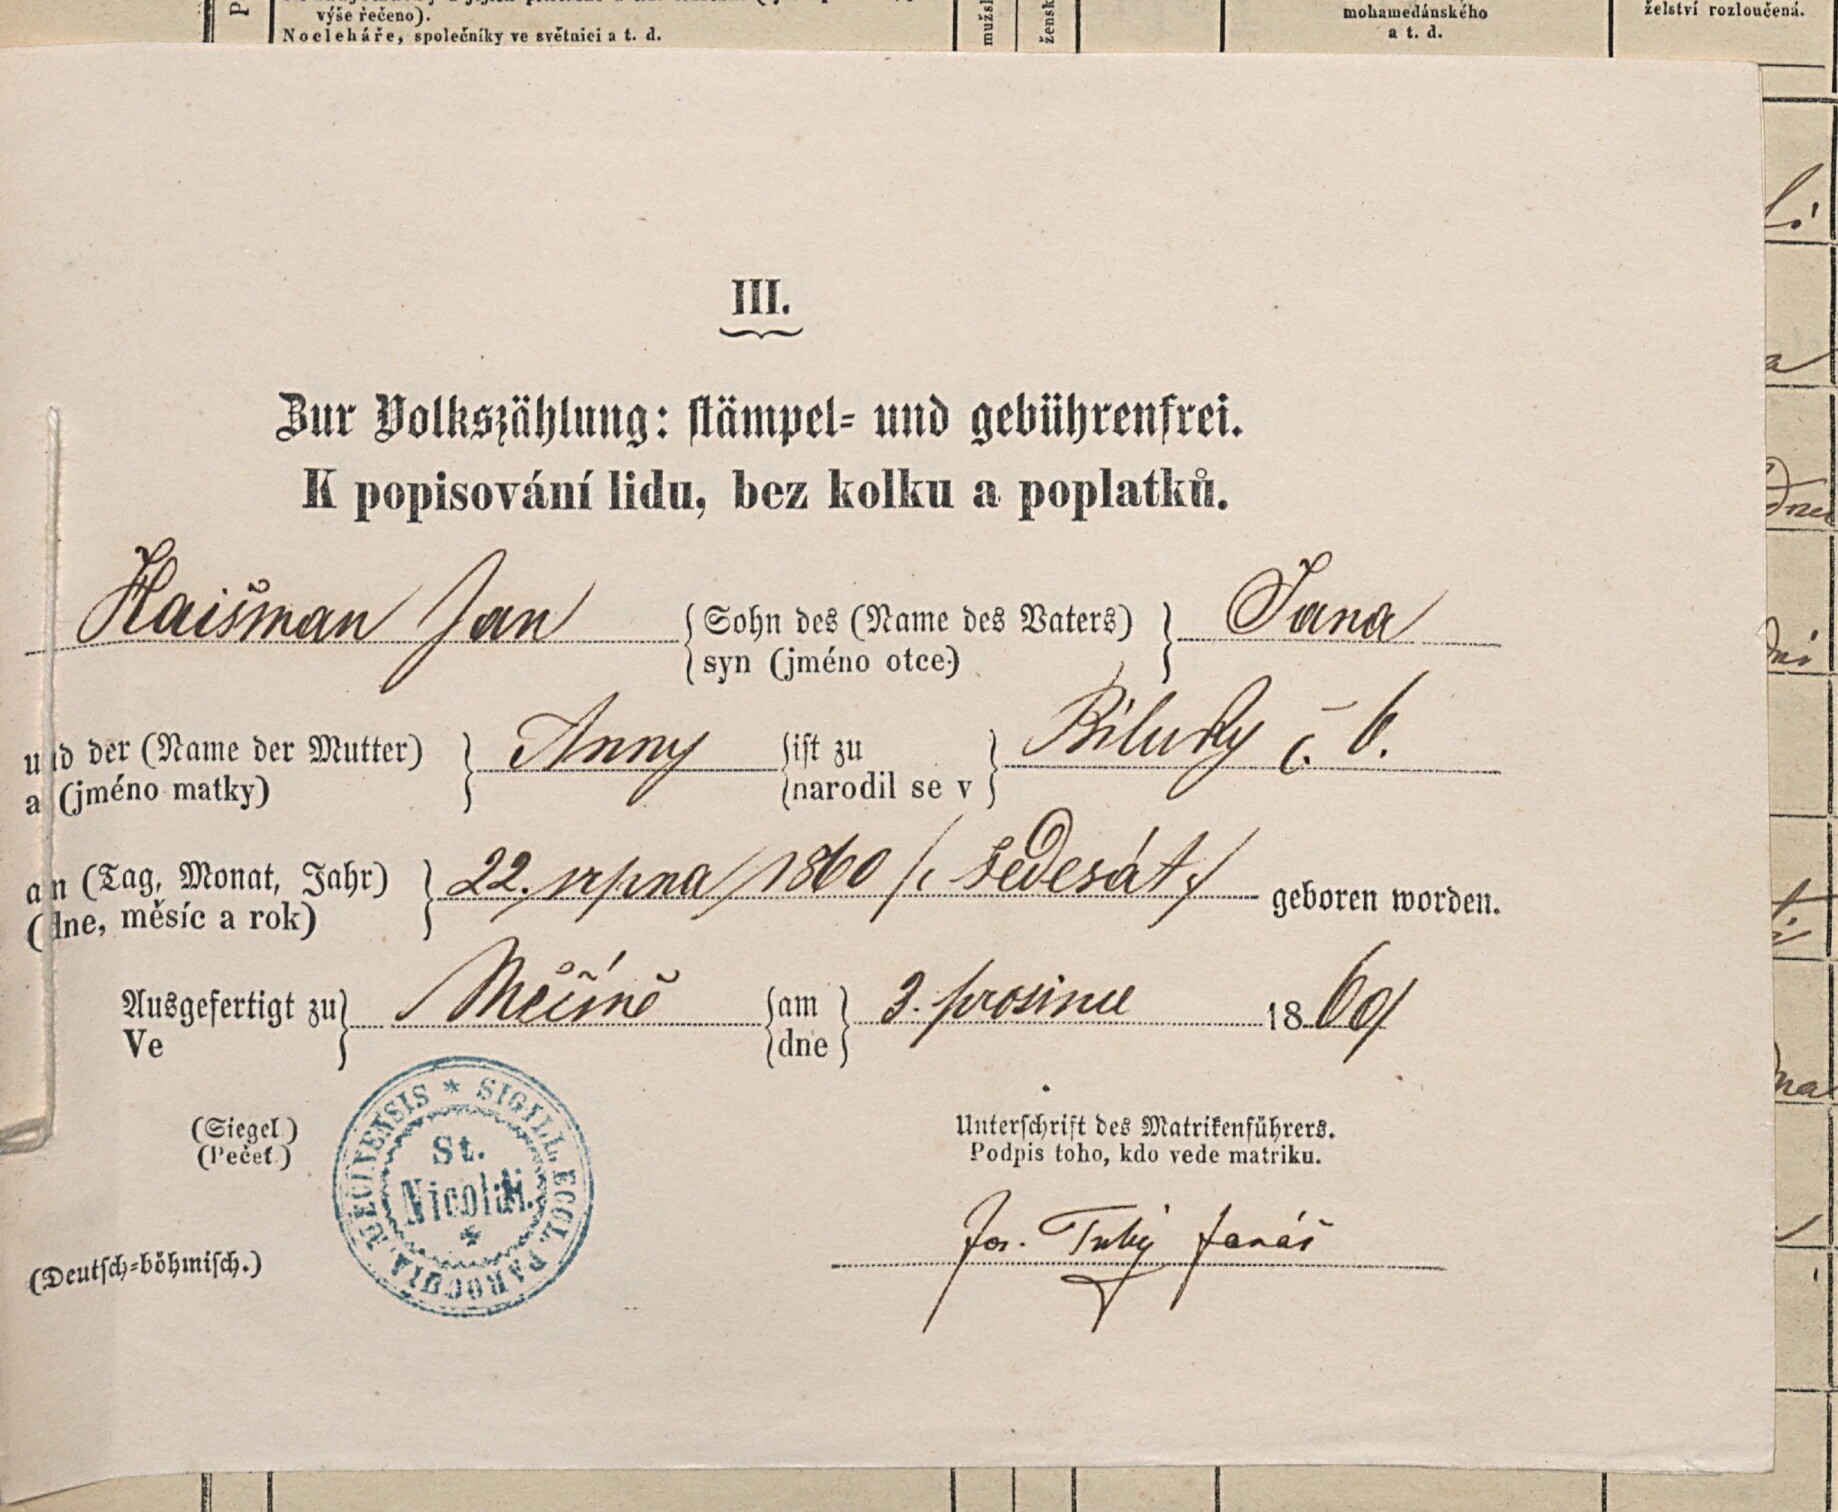 výše řečeno).
Nocleháře, společníky ve světnici a t. d.
mužsk
žensk
mohamedánského
a t. d.
želství rozloučená.
III.
Zur Volkszählung: stämpel- und gebührenfrei.
K popisování lidu, bez kolku a poplatků.
Haišman Jan { Sohn des (Name des Vaters) } Jana
syn (jméno otce)
und der (Name der Mutter) } Anny { ist zu } Biluky č. 6.
a (jméno matky) narodil se v
am (Tag, Monat, Jahr) } 22. srpna 1860 /: šedesát :/ geboren worden.
(dne, měsíc a rok)
Ausgefertigt zu } Měčíně { am } 3. prosince 1869
Ve dne
(Siegel)
(Pečeť)
SIGILL. ECCL. PAROCHIA. MECINENSIS *
St.
Nicolai.
Unterschrift des Matrikenführers.
Podpis toho, kdo vede matriku.
Jos. farář
(Deutsch-böhmisch.)